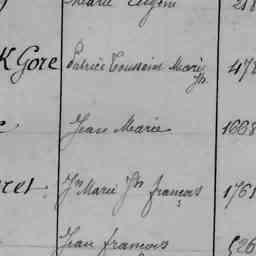 Marie Eugène 218
K Gore Patrice Toussaint Marie 478
Jh
Jean Marie 1668
res Jn Marie Jh françois 1761
Jean françois 526